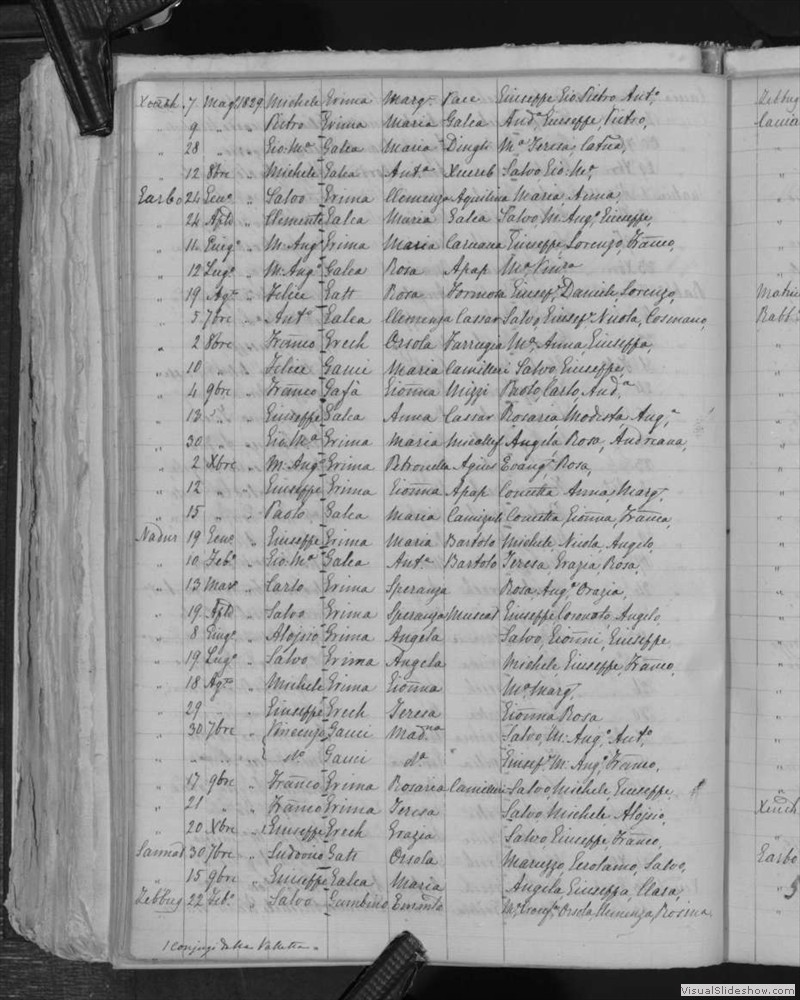 Xeuch. 7 Mag. 1829 Michele Grima Marg. Pace Giuseppe Gio. Pietro Ant.o
" 9 " " Pietro Grima Maria Galea And. Giuseppe, Pietro,
" 28 " " Gio. M.a Galea Maria Dingli M.a Teresa, Catna,
" 12 8bre Michele Galea Ant.a Xuereb Salvo Gio. M.a
Garbo 24 Gen.o " Salvo Grima Clemenza Aquilina Maria Anna,
" 24 Aple " Clemente Galea Maria Galea Salvo, M. Ang.o Giuseppe,
" 11 Giug.o " M. Ang.o Grima Maria Caruana Giuseppe Lorenzo, Franco,
" 12 Lug.o " M. Ang.o Galea Rosa Apap M.a
" 19 Ag.o " Felice Gatt Rosa Formosa Giusep. Daniele, Lorenzo,
" 5 7bre " Ant.o Galea Clemenza Cassar Salvo, Giusep. Nicola, Cosmano,
" 2 8bre " Franco Grech Orsola Farrugia M.a Anna, Giuseppa,
" 10 " " Felice Gauci Maria Camilleri Salvo, Giuseppe,
" 4 9bre " Franco Gafà Gionna Mizzi Paolo, Carlo, And.a
" 13 " " Giuseppe Galea Anna Cassar Rosaria, Modesta Ang.a
" 30 " " Gio. M.a Grima Maria Micallef Angela Rosa, Andreana,
" 2 Xbre " M. Ang.o Grima Petronella Agius Evang. Rosa,
" 12 " " Giuseppe Grima Gionna Apap Concetta Anna, Marg.
" 15 " " Paolo Galea Maria Concetta Gionna, Franca,
Nadur 19 Gen.o " Giuseppe Grima Maria Bartolo Michele, Nicola, Angelo,
" 10 Feb.o " Gio. M.a Galea Ant.a Bartolo Teresa Grazia, Rosa,
" 13 Mar.o " Carlo Grima Speranza Rosa, Ang.a Orazia,
" 19 Aple " Salvo Grima Speranza Muscat Giuseppe Coronato, Angelo,
" 8 Giug.o " Aloisio Grima Angela Salvo, Gionni, Giuseppe
" 19 Lug.o " Salvo Grima Angela Michele, Giuseppe, Franco,
" 18 Ag.o " Michele Grima Gionna M.a Marg.
" 29 " " Giuseppe Grech Teresa Gionna Rosa
" 30 7bre " Vincenzo Gauci Mad.na Salvo, M. Ang.o Ant.o
" " " " d.o Gauci d.a " Giusep. M. Ang.o Franco,
" 17 9bre " Franco Grima Rosaria Camilleri Salvo, Michele, Giuseppe,
" 21 " " Franco Grima Teresa Salvo Michele Aloisio,
" 20 Xbre " Giuseppe Grech Grazia Salvo Giuseppe, Franco,
Sannat 30 7bre " Ludovico Gatt Orsola Maruzzo, Gerolamo, Salvo,
" 15 9bre " Giuseppe Galea Maria Angela, Giuseppa, Clara,
Zebbug 22 Feb.o " Salvo Gumbino M.a Orsola, Clemenza, Rosina
1 conjugi della Valletta.
Zebbug
Garbo
5
VisualSlideshow.com